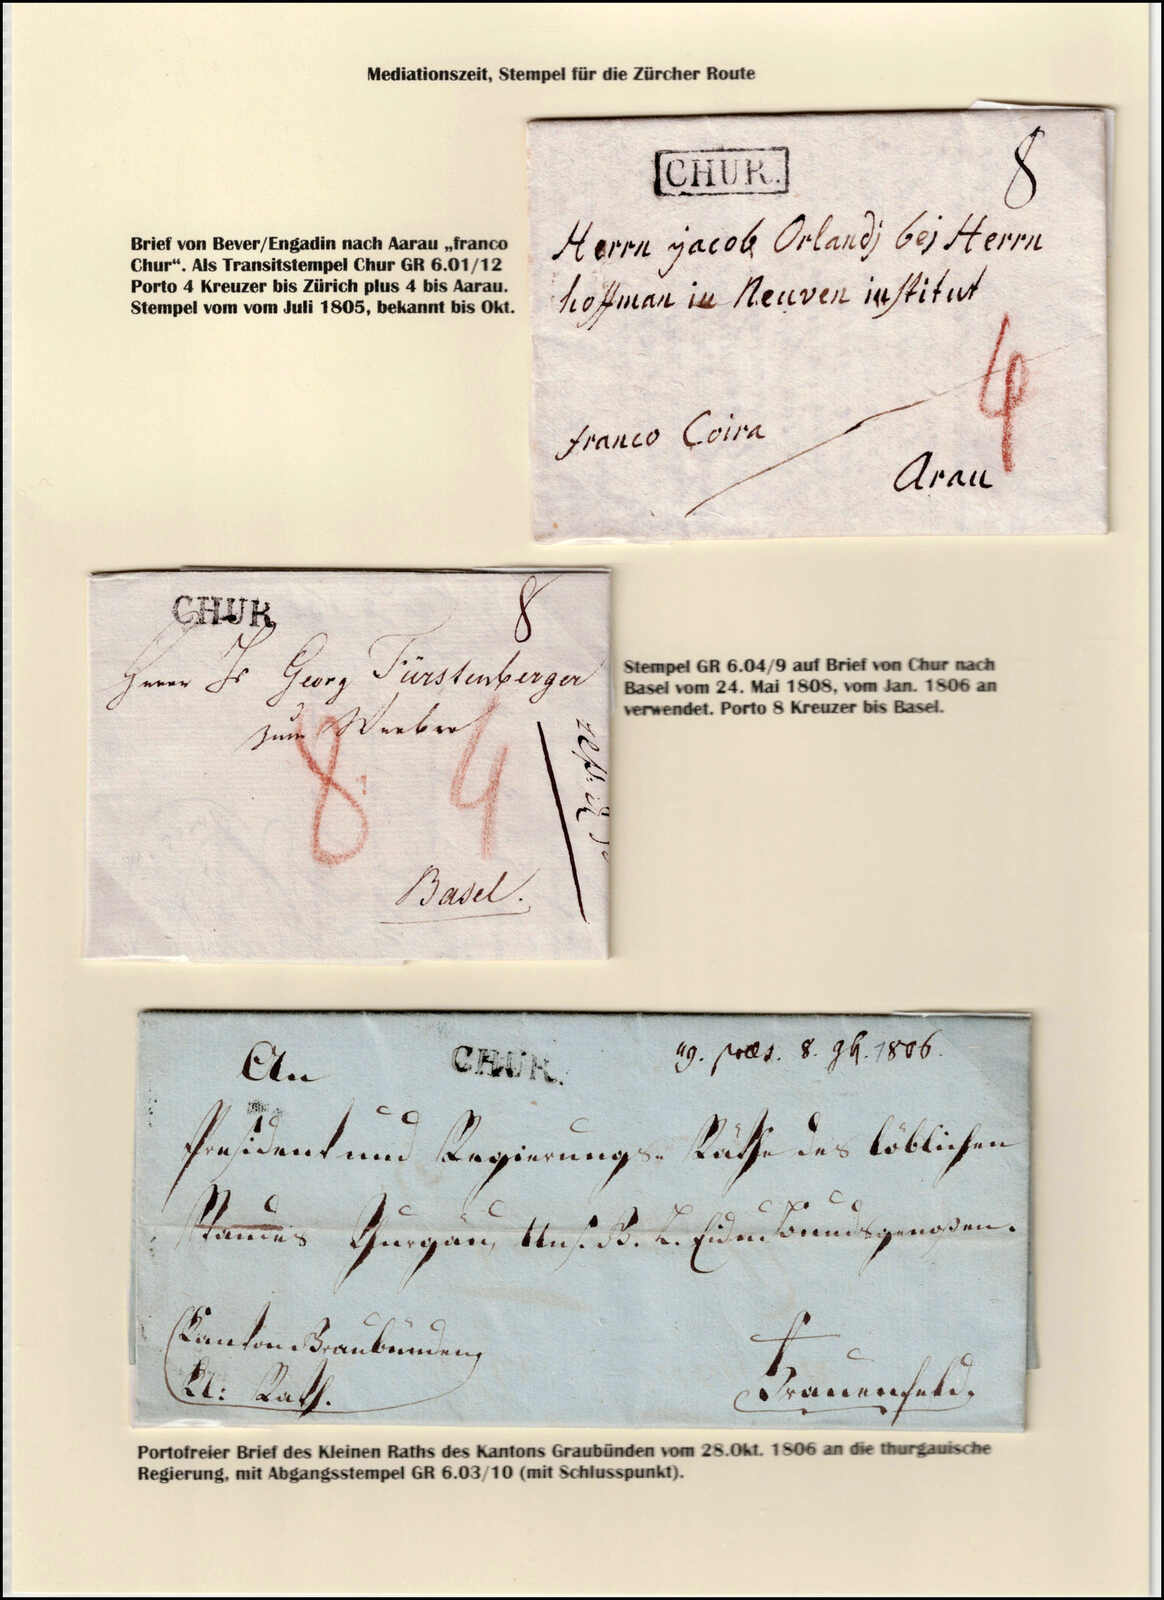 Mediationszeit, Stempel für die Zürcher Route
CHUR.
8
Brief von Bever/Engadin nach Aarau „franco
Chur“. Als Transitstempel Chur GR 6.01/12
Porto 4 Kreuzer bis Zürich plus 4 bis Aarau.
Stempel vom vom Juli 1805, bekannt bis Okt.
Herrn jacob Orlandj bej Herrn
hoffman in Neuven institut
4
franco Coira
Arau
CHUR
8
Herrn Georg Fürstenberger
zum
8 4
Basel.
Stempel GR 6.04/9 auf Brief von Chur nach
Basel vom 24. Mai 1808, vom Jan. 1806 an
verwendet. Porto 8 Kreuzer bis Basel.
An
CHUR.
præs. 8. 1806.
Præsident und Regierungs-Räthe des löblichen
Standes Thurgäu, Uns. Bundsgenoßen.
Canton Graubünden
Kl: Rath.
Frauenfeld.
Portofreier Brief des Kleinen Raths des Kantons Graubünden vom 28.Okt. 1806 an die thurgauische
Regierung, mit Abgangsstempel GR 6.03/10 (mit Schlusspunkt).